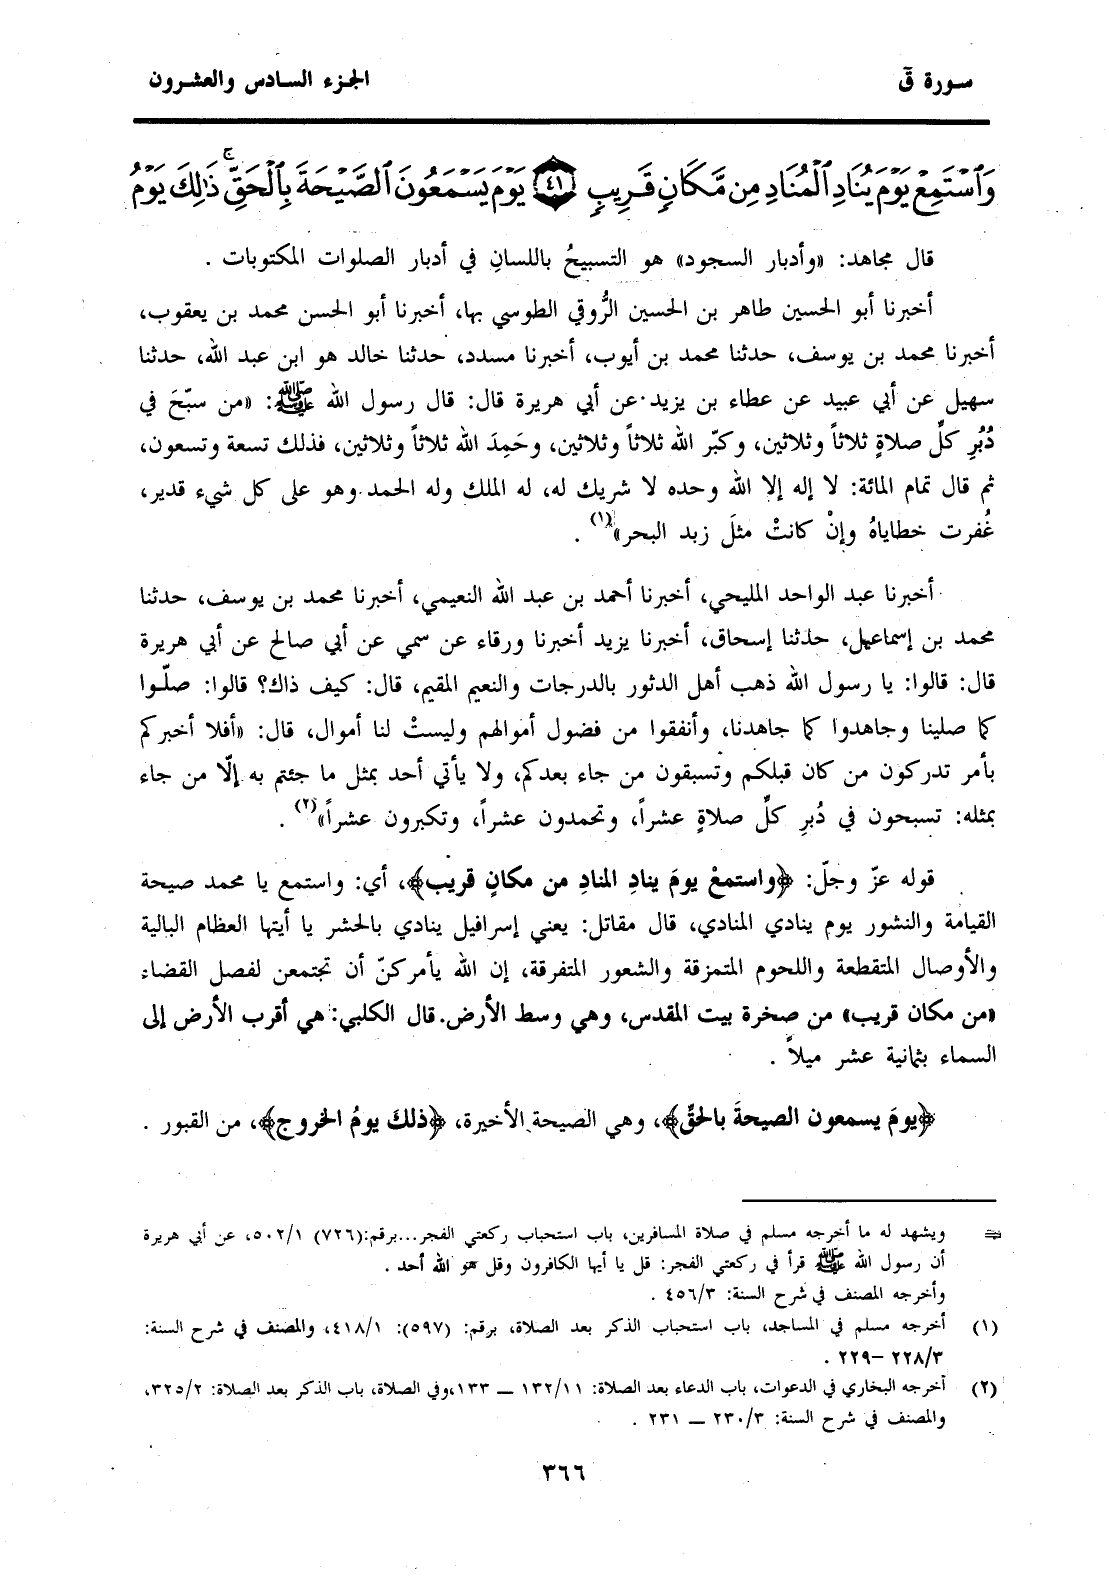 سورة قٓ
الجزء السادس والعشرون
وَٱسْتَمِعْ يَوْمَ يُنَادِ ٱلْمُنَادِ مِن مَّكَانٍ قَرِيبٍ ٤١ يَوْمَ يَسْمَعُونَ ٱلصَّيْحَةَ بِٱلْحَقِّ ۚ ذَٰلِكَ يَوْمُ
قال مجاهد: «وأدبار السجود» هو التسبيحُ باللسانِ في أدبار الصلوات المكتوبات .
أخبرنا أبو الحسين طاهر بن الحسين الرُّوقي الطوسي بها، أخبرنا أبو الحسن محمد بن يعقوب،
أخبرنا محمد بن يوسف، حدثنا محمد بن أيوب، أخبرنا مسدد، حدثنا خالد هو ابن عبد الله، حدثنا
سهيل عن أبي عبيد عن عطاء بن يزيد عن أبي هريرة قال: قال رسول الله ﷺ: «من سبّحَ في
دُبُرِ كلِّ صلاةٍ ثلاثاً وثلاثين، وكبّر الله ثلاثاً وثلاثين، وحَمِدَ الله ثلاثاً وثلاثين، فذلك تسعة وتسعون،
ثم قال تمام المائة: لا إله إلا الله وحده لا شريك له، له الملك وله الحمد وهو على كل شيء قدير،
غُفرت خطاياهُ وإنْ كانتْ مثلَ زبد البحر»(١) .
أخبرنا عبد الواحد المليحي، أخبرنا أحمد بن عبد الله النعيمي، أخبرنا محمد بن يوسف، حدثنا
محمد بن إسماعيل، حدثنا إسحاق، أخبرنا يزيد أخبرنا ورقاء عن سمي عن أبي صالح عن أبي هريرة
قال: قالوا: يا رسول الله ذهب أهل الدثور بالدرجات والنعيم المقيم، قال: كيف ذاك؟ قالوا: صلّوا
كما صلينا وجاهدوا كما جاهدنا، وأنفقوا من فضول أموالهم وليستْ لنا أموال، قال: «أفلا أخبركم
بأمر تدركون من كان قبلكم وتسبقون من جاء بعدكم، ولا يأتي أحد بمثل ما جئتم به إلّا من جاء
بمثله: تسبحون في دُبرِ كلِّ صلاةٍ عشراً، وتحمدون عشراً، وتكبرون عشراً»(٢) .
قوله عزّ وجلّ: ﴿واستمعْ يومَ ينادِ المنادِ من مكانٍ قريب﴾، أي: واستمع يا محمد صيحة
القيامة والنشور يوم ينادي المنادي، قال مقاتل: يعني إسرافيل ينادي بالحشر يا أيتها العظام البالية
والأوصال المتقطعة واللحوم المتمزقة والشعور المتفرقة، إن الله يأمركنّ أن تجتمعن لفصل القضاء
«من مكان قريب» من صخرة بيت المقدس، وهي وسط الأرض. قال الكلبي: هي أقرب الأرض إلى
السماء بثمانية عشر ميلاً .
﴿يومَ يسمعون الصيحةَ بالحقِّ﴾، وهي الصيحة الأخيرة، ﴿ذلكَ يومُ الخروج﴾، من القبور .
= ويشهد له ما أخرجه مسلم في صلاة المسافرين، باب استحباب ركعتي الفجر...برقم:(٧٢٦) ٥٠٢/١، عن أبي هريرة
أن رسول الله ﷺ قرأ في ركعتي الفجر: قل يا أيها الكافرون وقل هو الله أحد .
وأخرجه المصنف في شرح السنة: ٤٥٦/٣ .
(١) أخرجه مسلم في المساجد، باب استحباب الذكر بعد الصلاة، برقم: (٥٩٧): ٤١٨/١، والمصنف في شرح السنة:
٢٢٨/٣ –٢٢٩ .
(٢) أخرجه البخاري في الدعوات، باب الدعاء بعد الصلاة: ١٣٢/١١ — ١٣٣،وفي الصلاة، باب الذكر بعد الصلاة: ٣٢٥/٢،
والمصنف في شرح السنة: ٢٣٠/٣ — ٢٣١ .
٣٦٦